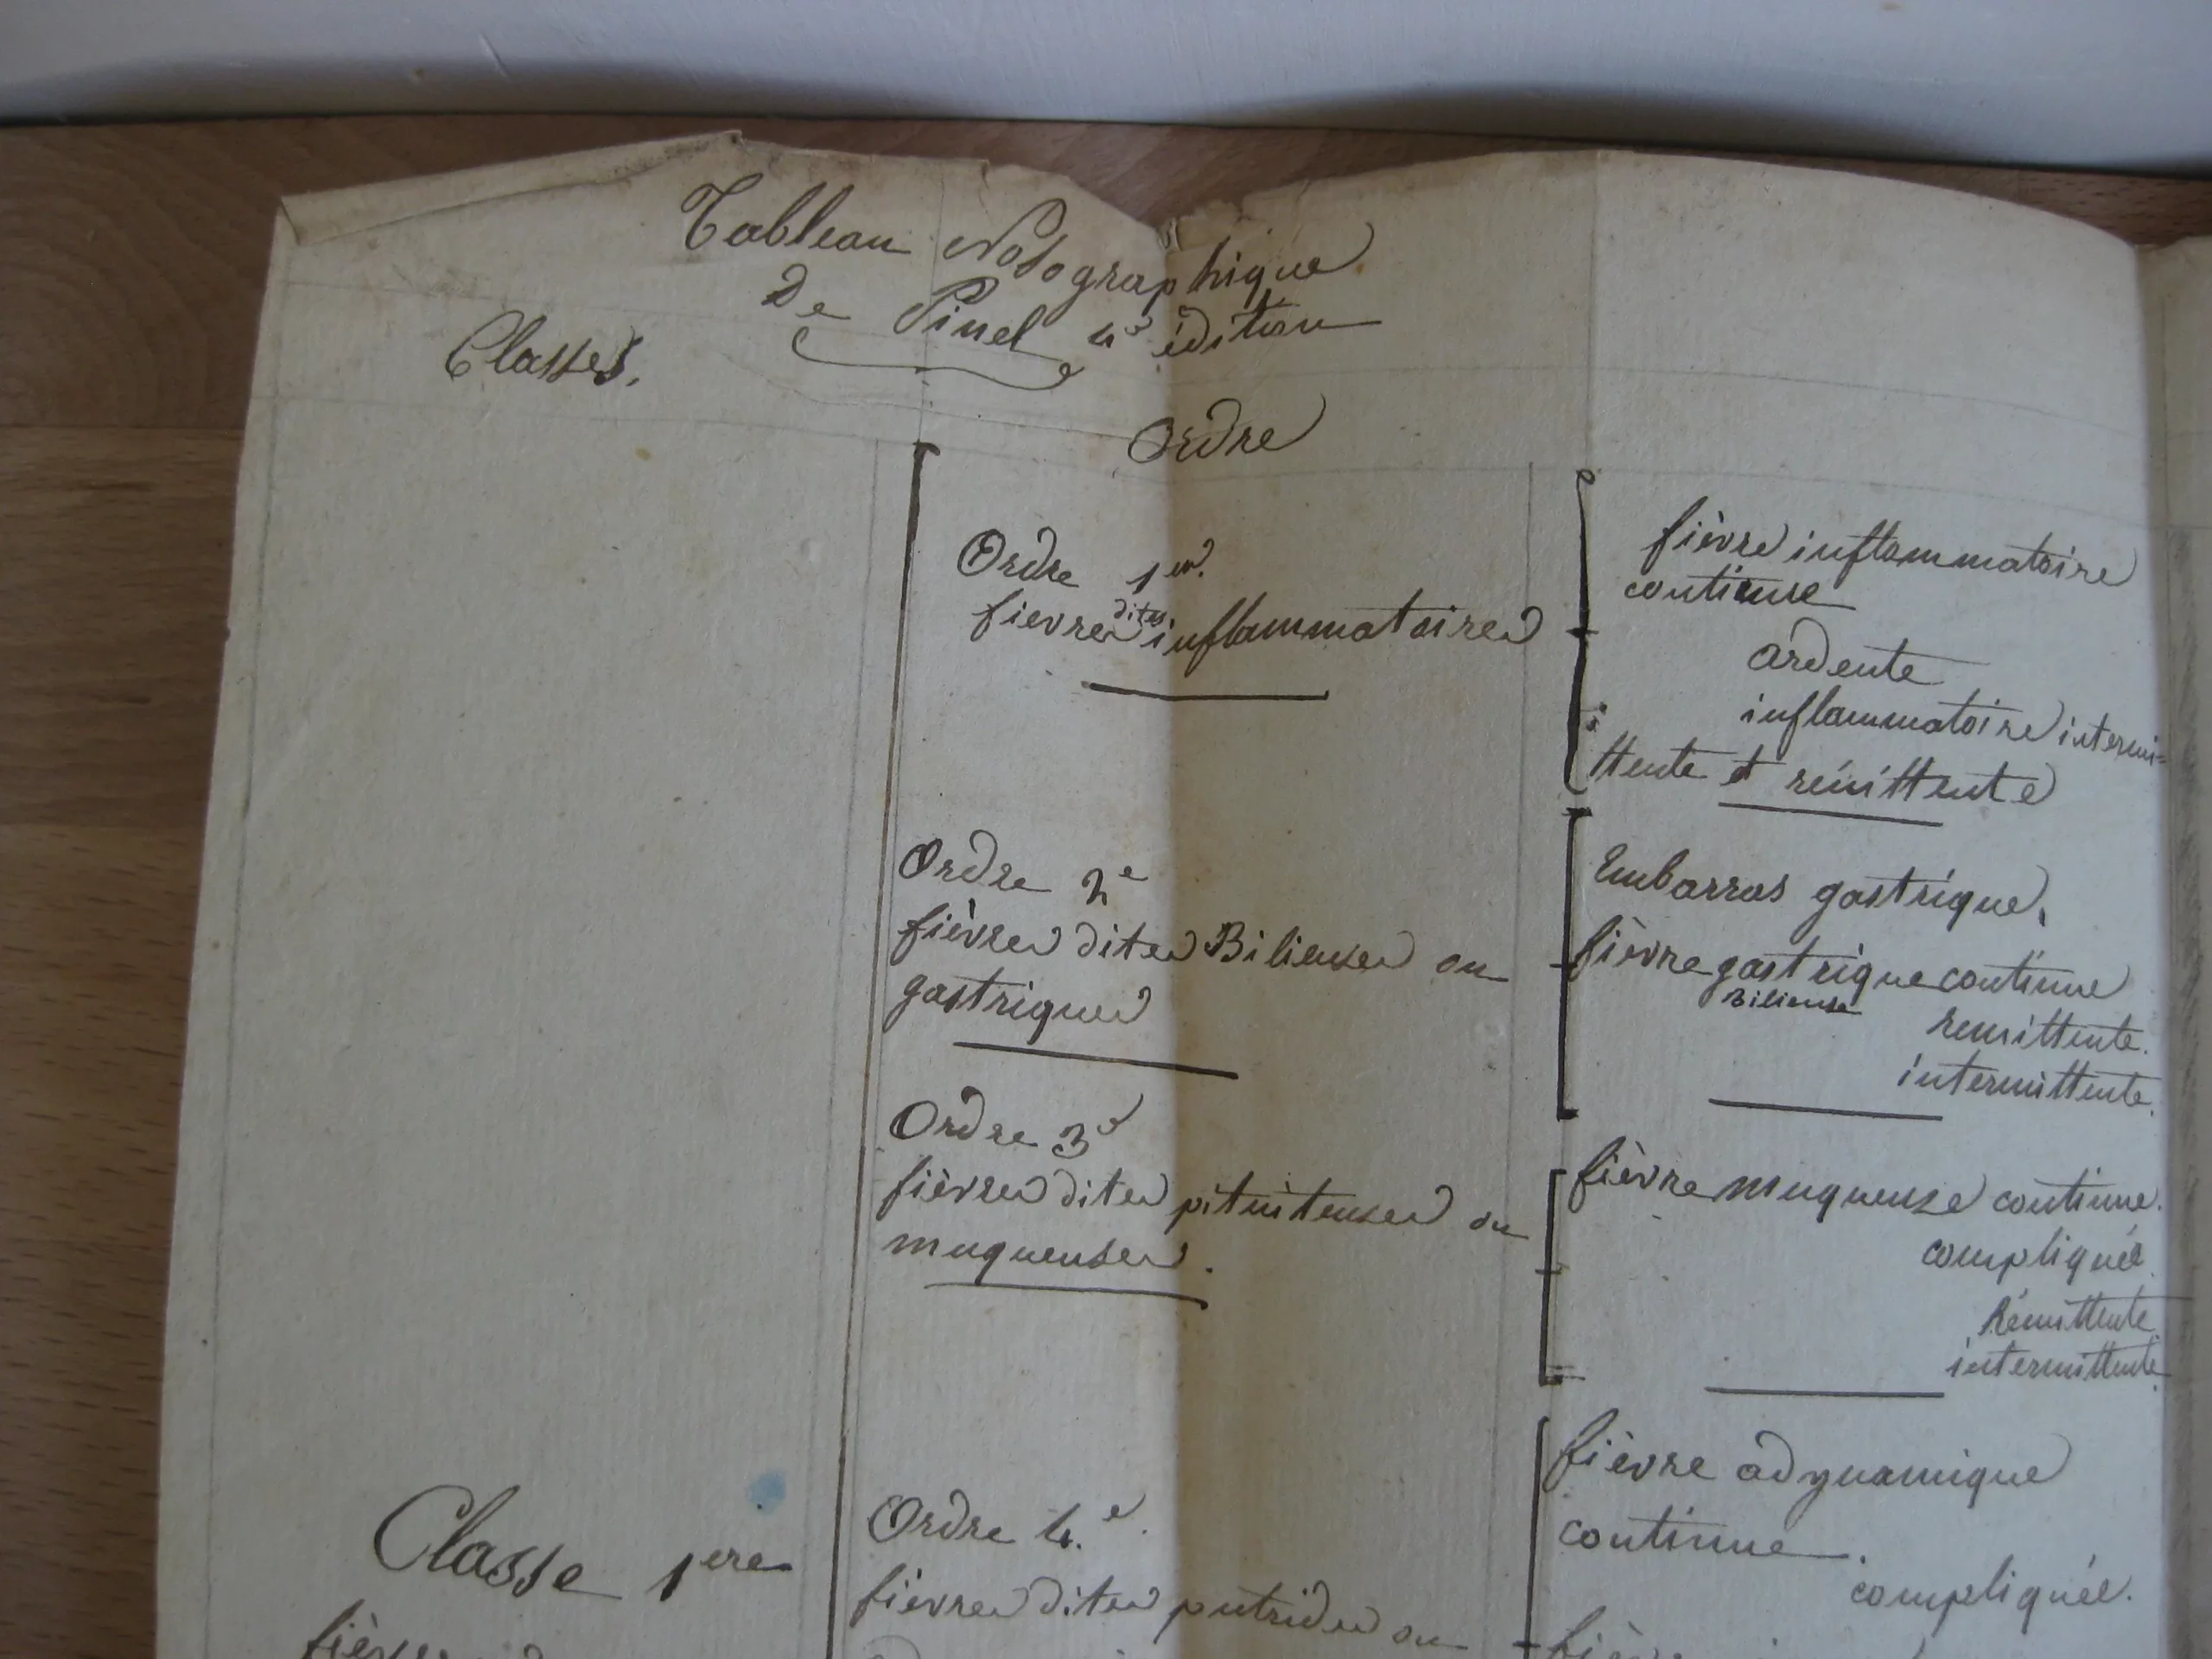 Tableau Nosographique
De Pinel 4e édition
Classes.
Ordre
Ordre 1er.
fievres dites inflammatoires
fièvre inflammatoire
continue
ardente
inflammatoire intermi=
ttente et rémittente
Ordre 2e
fièvres dites Bilieuses ou
gastriques
Embarras gastrique,
fièvre gastrique continue
Bilieuse
remittente.
intermittente.
Ordre 3e
fièvres dites pituiteuses ou
muqueuses.
fièvre muqueuse continue.
compliquée
Rémittente
intermittente.
Classe 1ere
Ordre 4.e.
fièvres dites putrides ou
fièvre adynamique
continue.
compliquée.